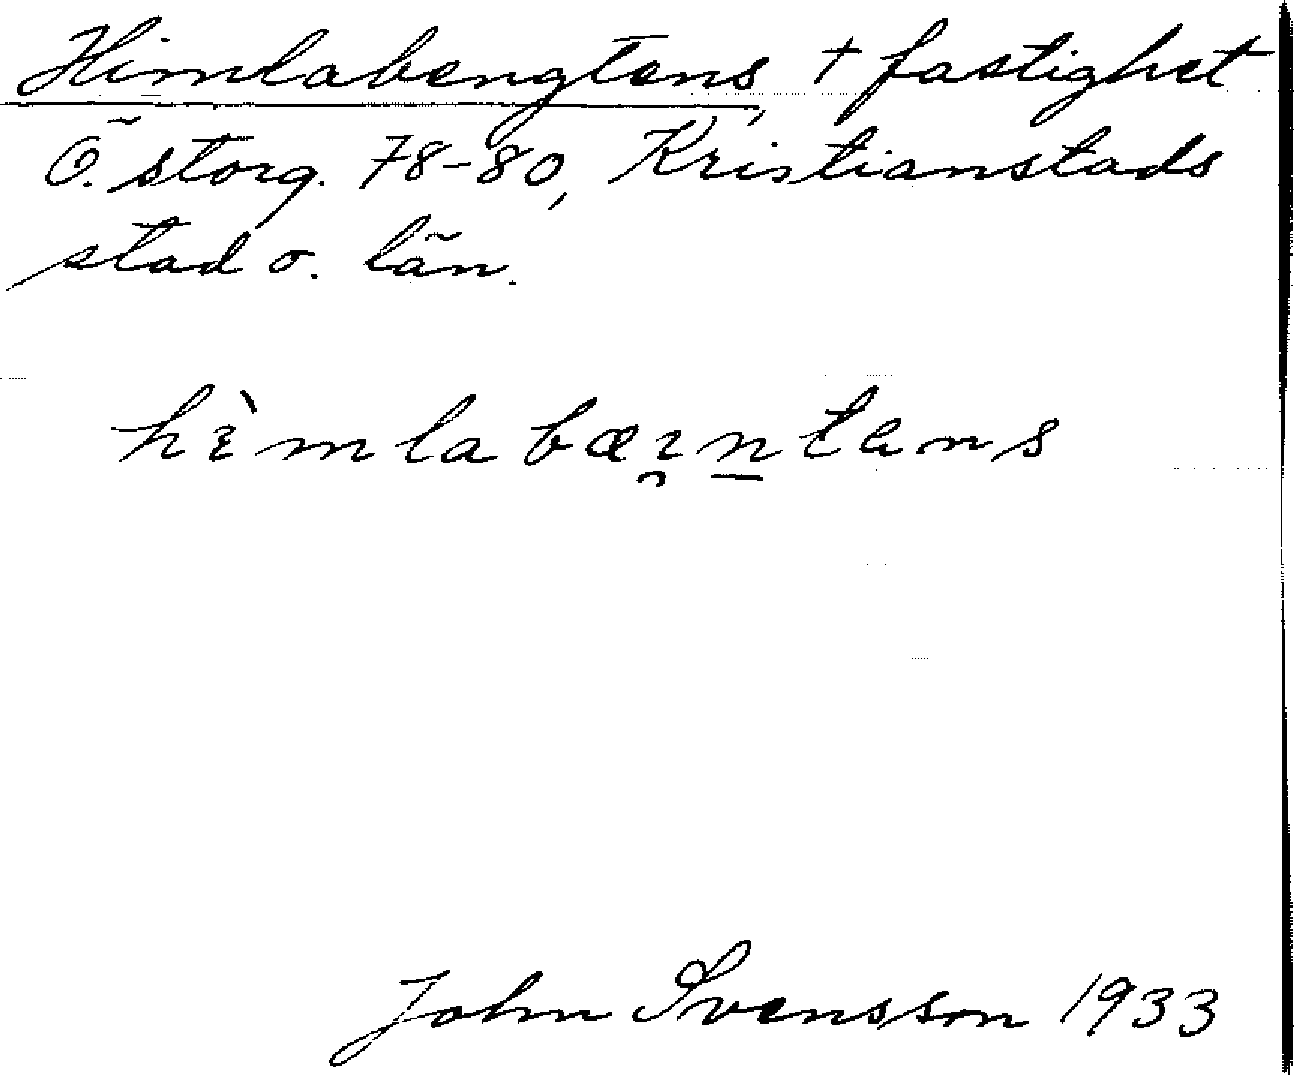 Himlabengtens, † fastighet
Ö. storg. 78-80, Kristianstads
stad o. län.
hɩ̀mlabæɩ̯n̲tens
John Svensson 1933